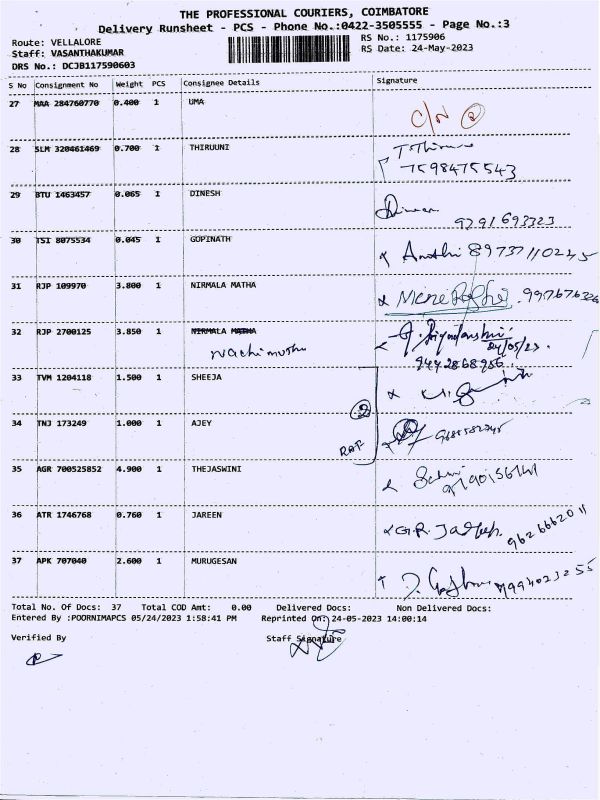 THE PROFESSIONAL COURIERS, COIMBATORE
Delivery Runsheet - PCS - Phone No.:0422-3505555 - Page No.:3
Route: VELLALORE
RS No.: 1175906
Staff: VASANTHAKUMAR
RS Date: 24-May-2023
DRS No.: DCJB117590603
S No Consignment No Weight PCS Consignee Details Signature
27 MAA 284760770 0.400 1 UMA
C/N 2
28 SLM 320461469 0.700 1 THIRUUNI
7598475543
29 BTU 1463457 0.065 1 DINESH
9791693323
30 TSI 8075534 0.045 1 GOPINATH
31 RJP 109970 3.800 1 NIRMALA MATHA
32 RJP 2700125 3.850 1 NIRMALA MATHA
Nachimuthu
24/05/23.
9442868956
33 TVM 1204118 1.500 1 SHEEJA
2
34 TNJ 173249 1.000 1 AJEY
35 AGR 700525852 4.900 1 THEJASWINI
36 ATR 1746768 0.760 1 JAREEN
G.R. 9626662011
37 APK 707040 2.600 1 MURUGESAN
9994023255
Total No. Of Docs: 37 Total COD Amt: 0.00 Delivered Docs: Non Delivered Docs:
Entered By :POORNIMAPCS 05/24/2023 1:58:41 PM Reprinted On: 24-05-2023 14:00:14
Verified By Staff Signature